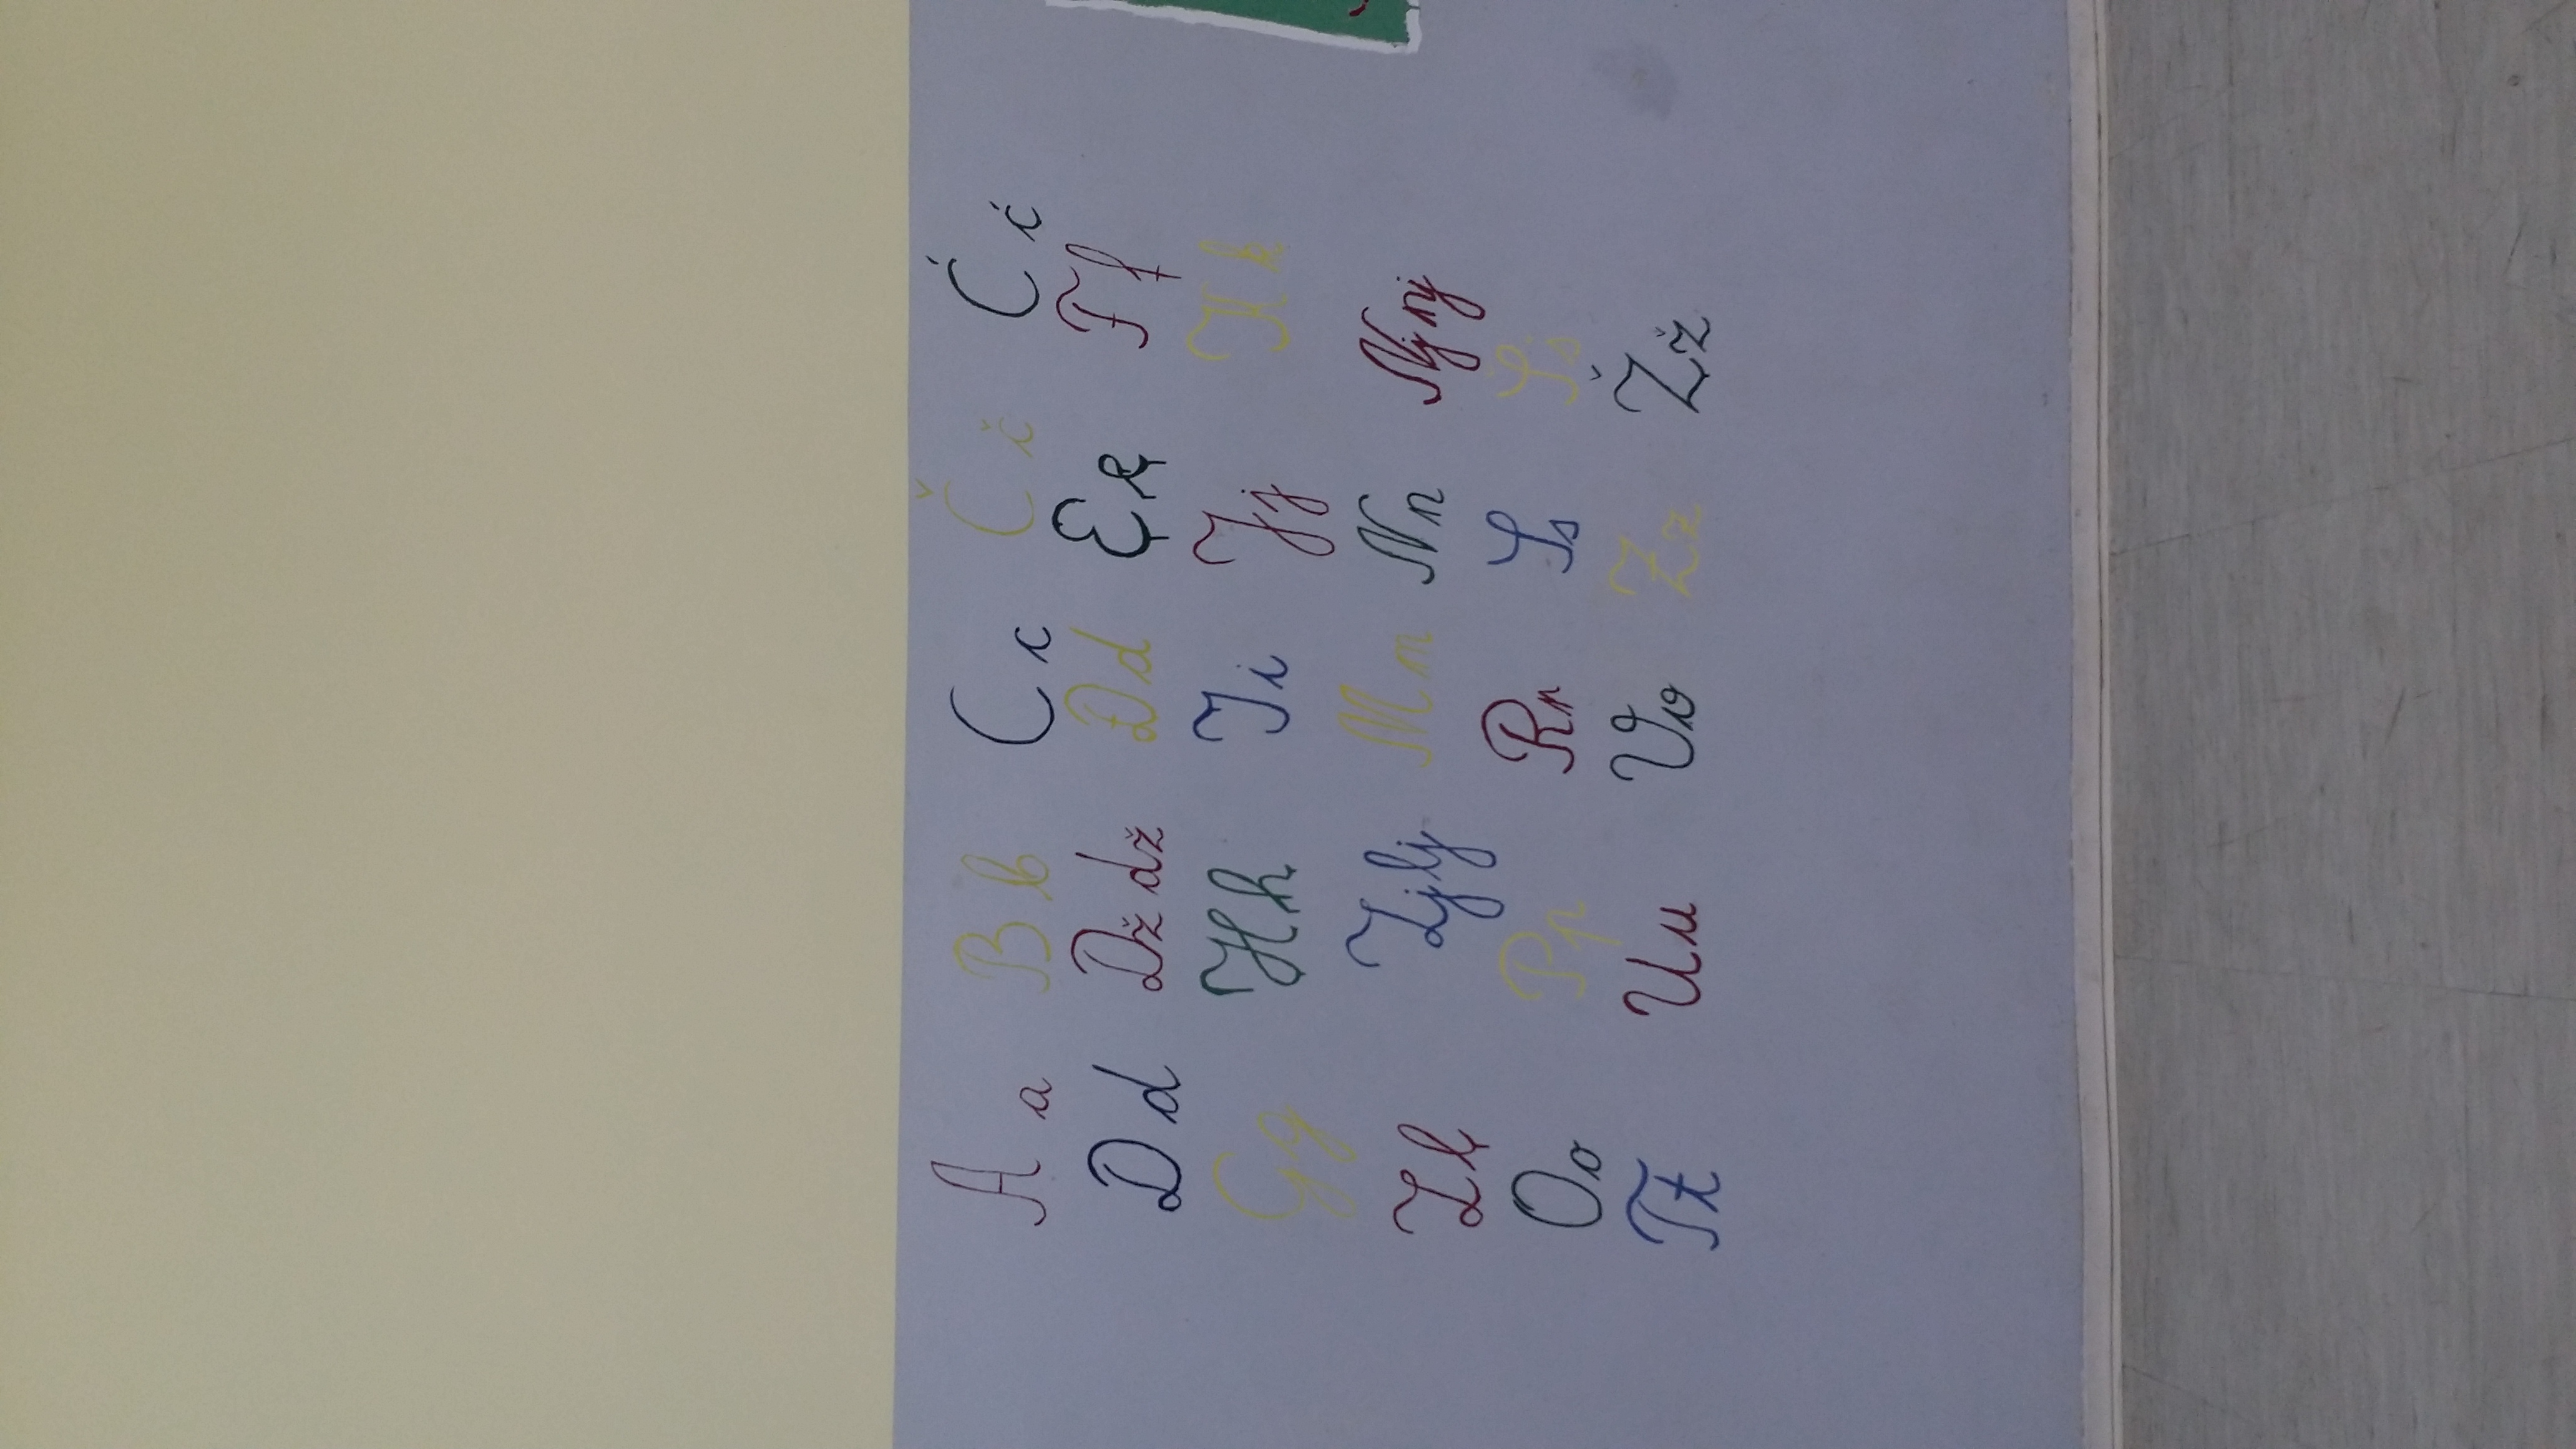 A a B b C c Č č Ć ć
D d Dž dž Đ d E e F f
G g H h I i J j K k
L l Lj lj M m N n Nj nj
O o P p R r S s Š š
T t U u V v Z z Ž ž